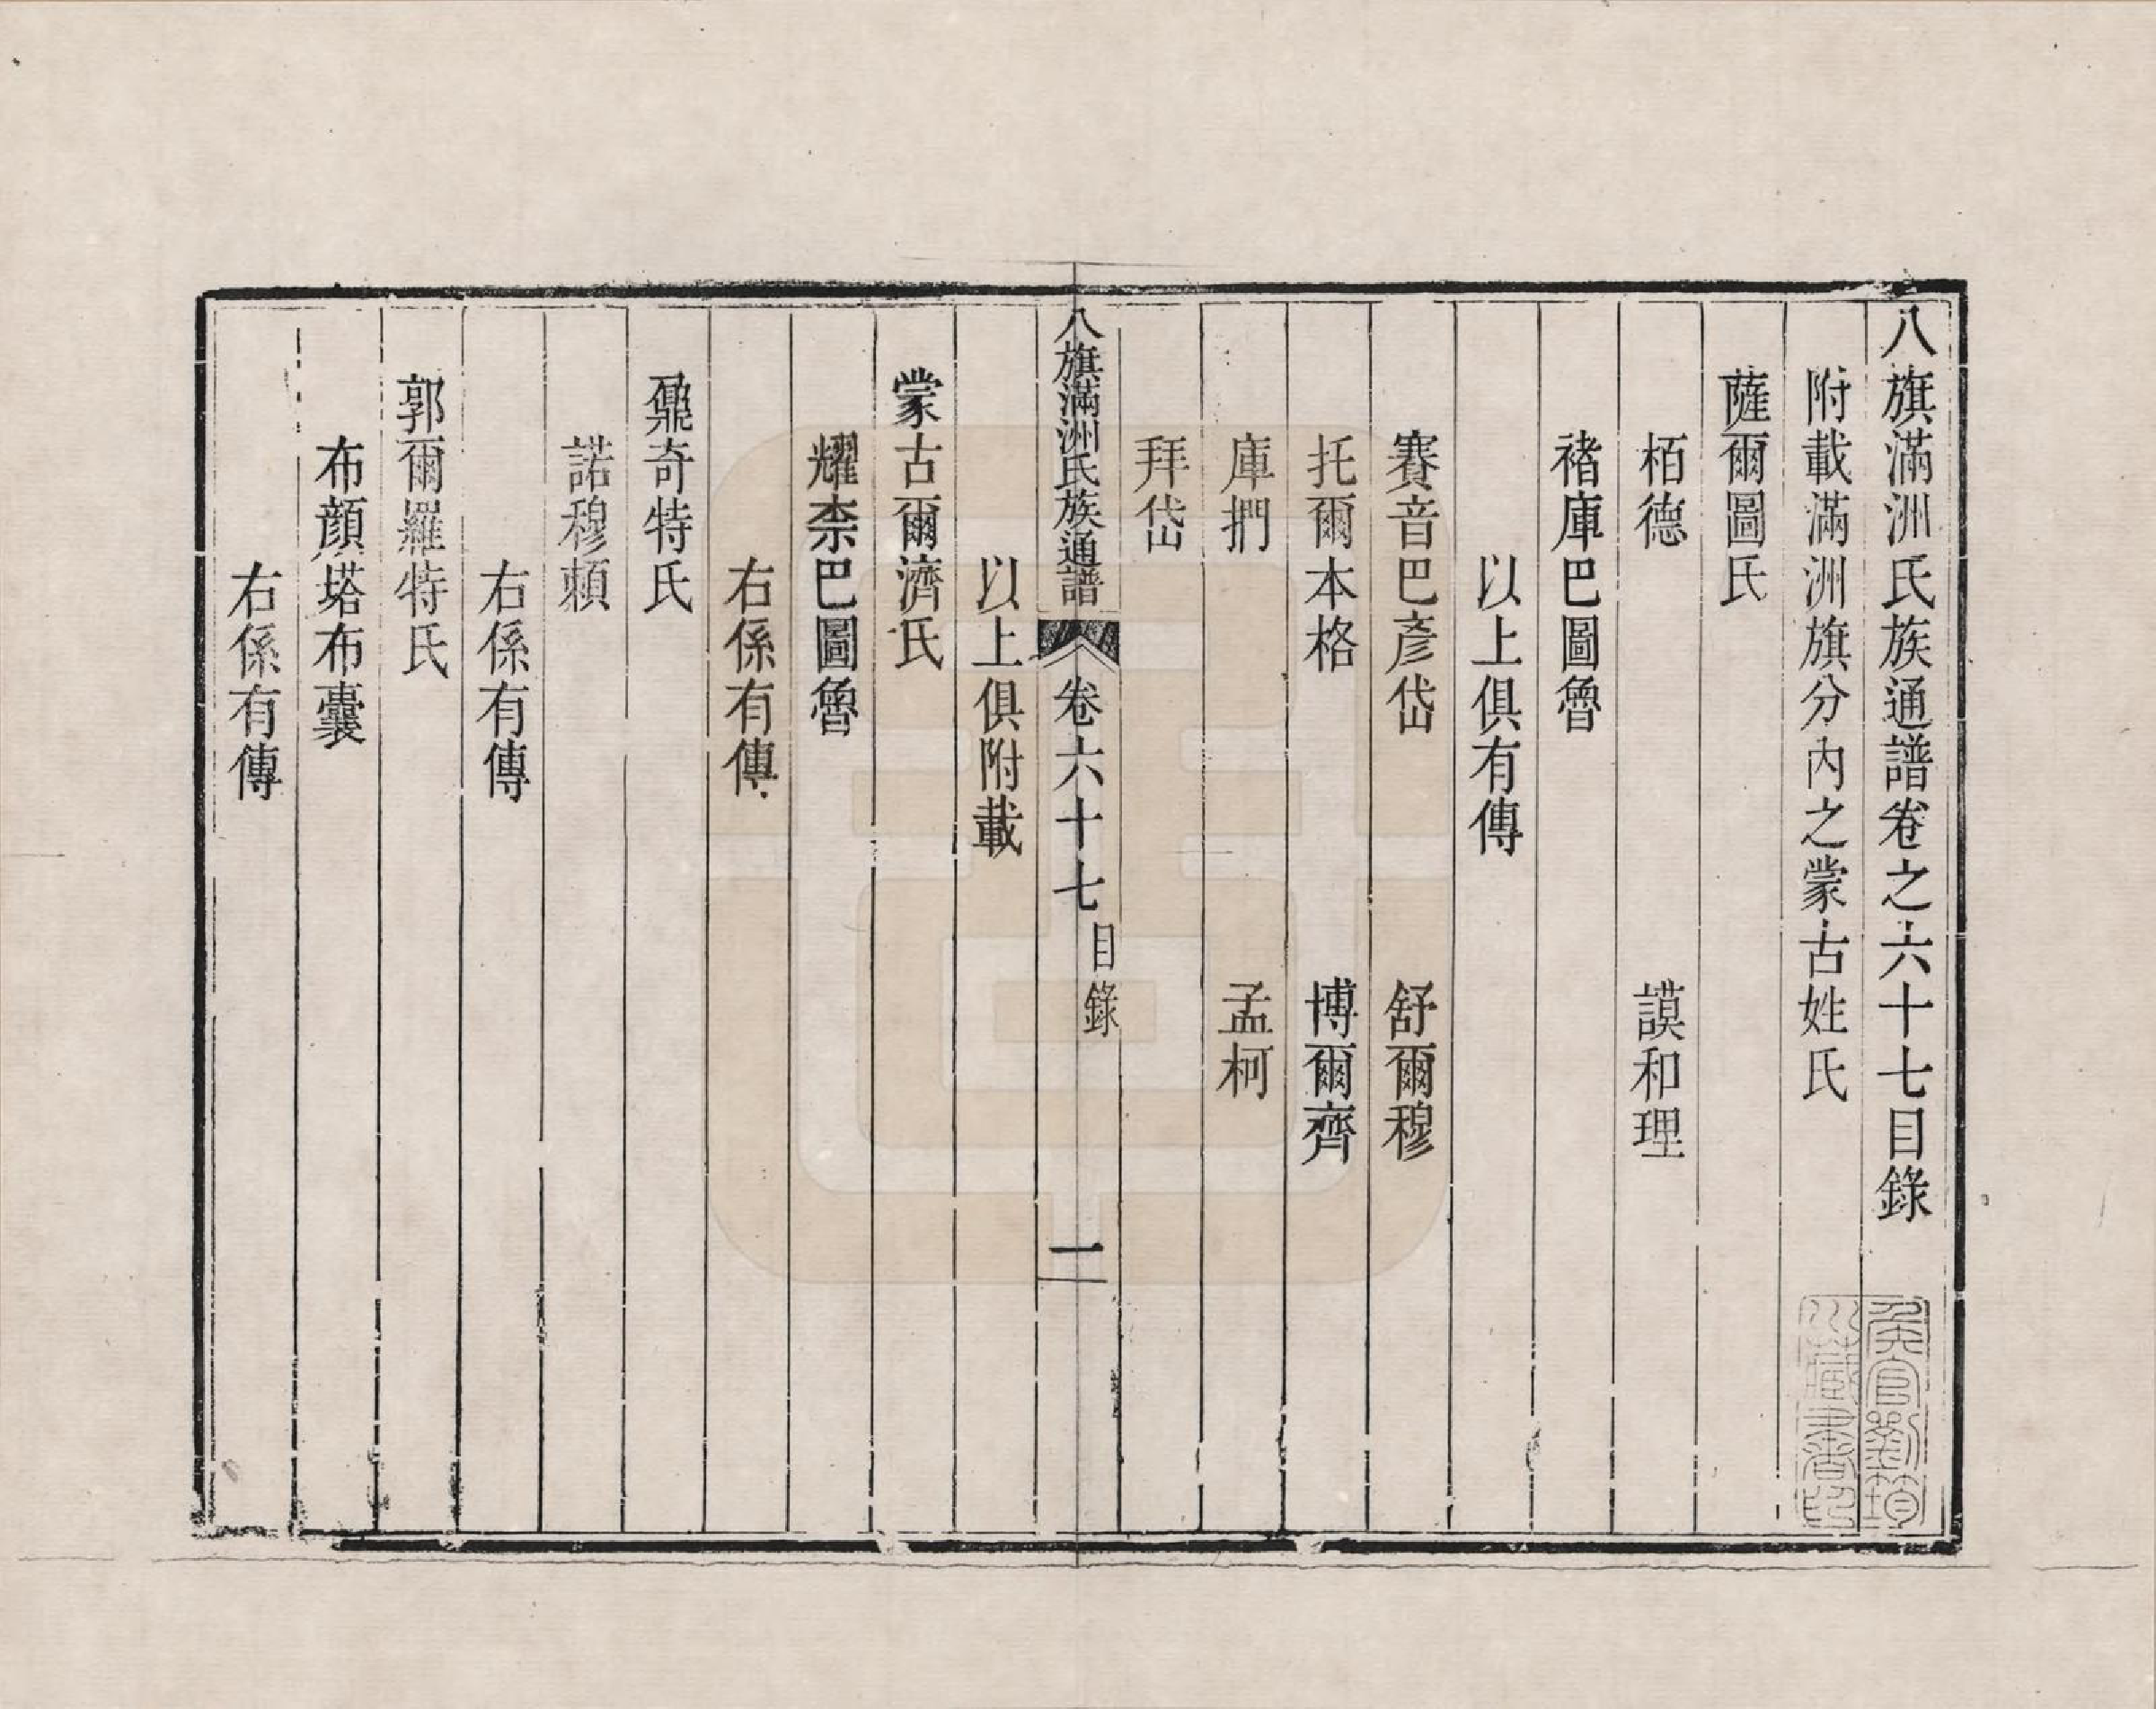 八旗滿洲氏族通譜卷之六十七目錄
附載滿洲旗分內之蒙古姓氏
薩爾圖氏
栢德　謨和理
禇庫巴圖魯
以上俱有傳
賽音巴彥岱　舒爾穆
托爾本格　博爾齊
庫捫　孟柯
拜岱
八旗滿洲氏族通譜　卷六十七　目錄　一
以上俱附載
蒙古爾濟氏
耀柰巴圖魯
右係有傳
鼐奇特氏
諾穆賴
右係有傳
郭爾羅特氏
布顔塔布囊
右係有傳
侯官劉筠
川藏書印